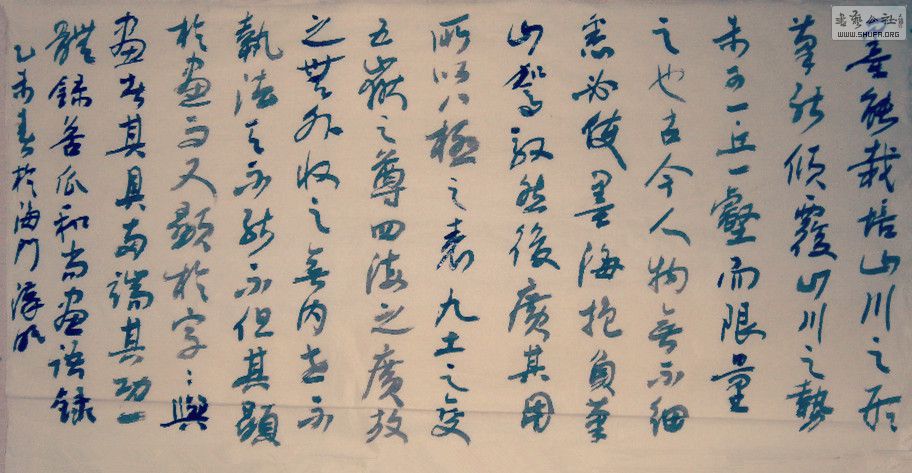 书艺公社
WWW.SHUFA.ORG
墨能栽培山川之形
筆能傾覆山川之勢
未可一丘一壑而限量
之也古今人物無不細
悉必使墨海抱負筆
山駕馭然後廣其用
所以八極之表九土之變
五嶽之尊四海之廣放
之無外收之無内世不
執法天不能不但其顯
於畫而又顯於字〻與
畫者其具兩端其功一
體錄苦瓜和尚画語錄
乙未春於海門